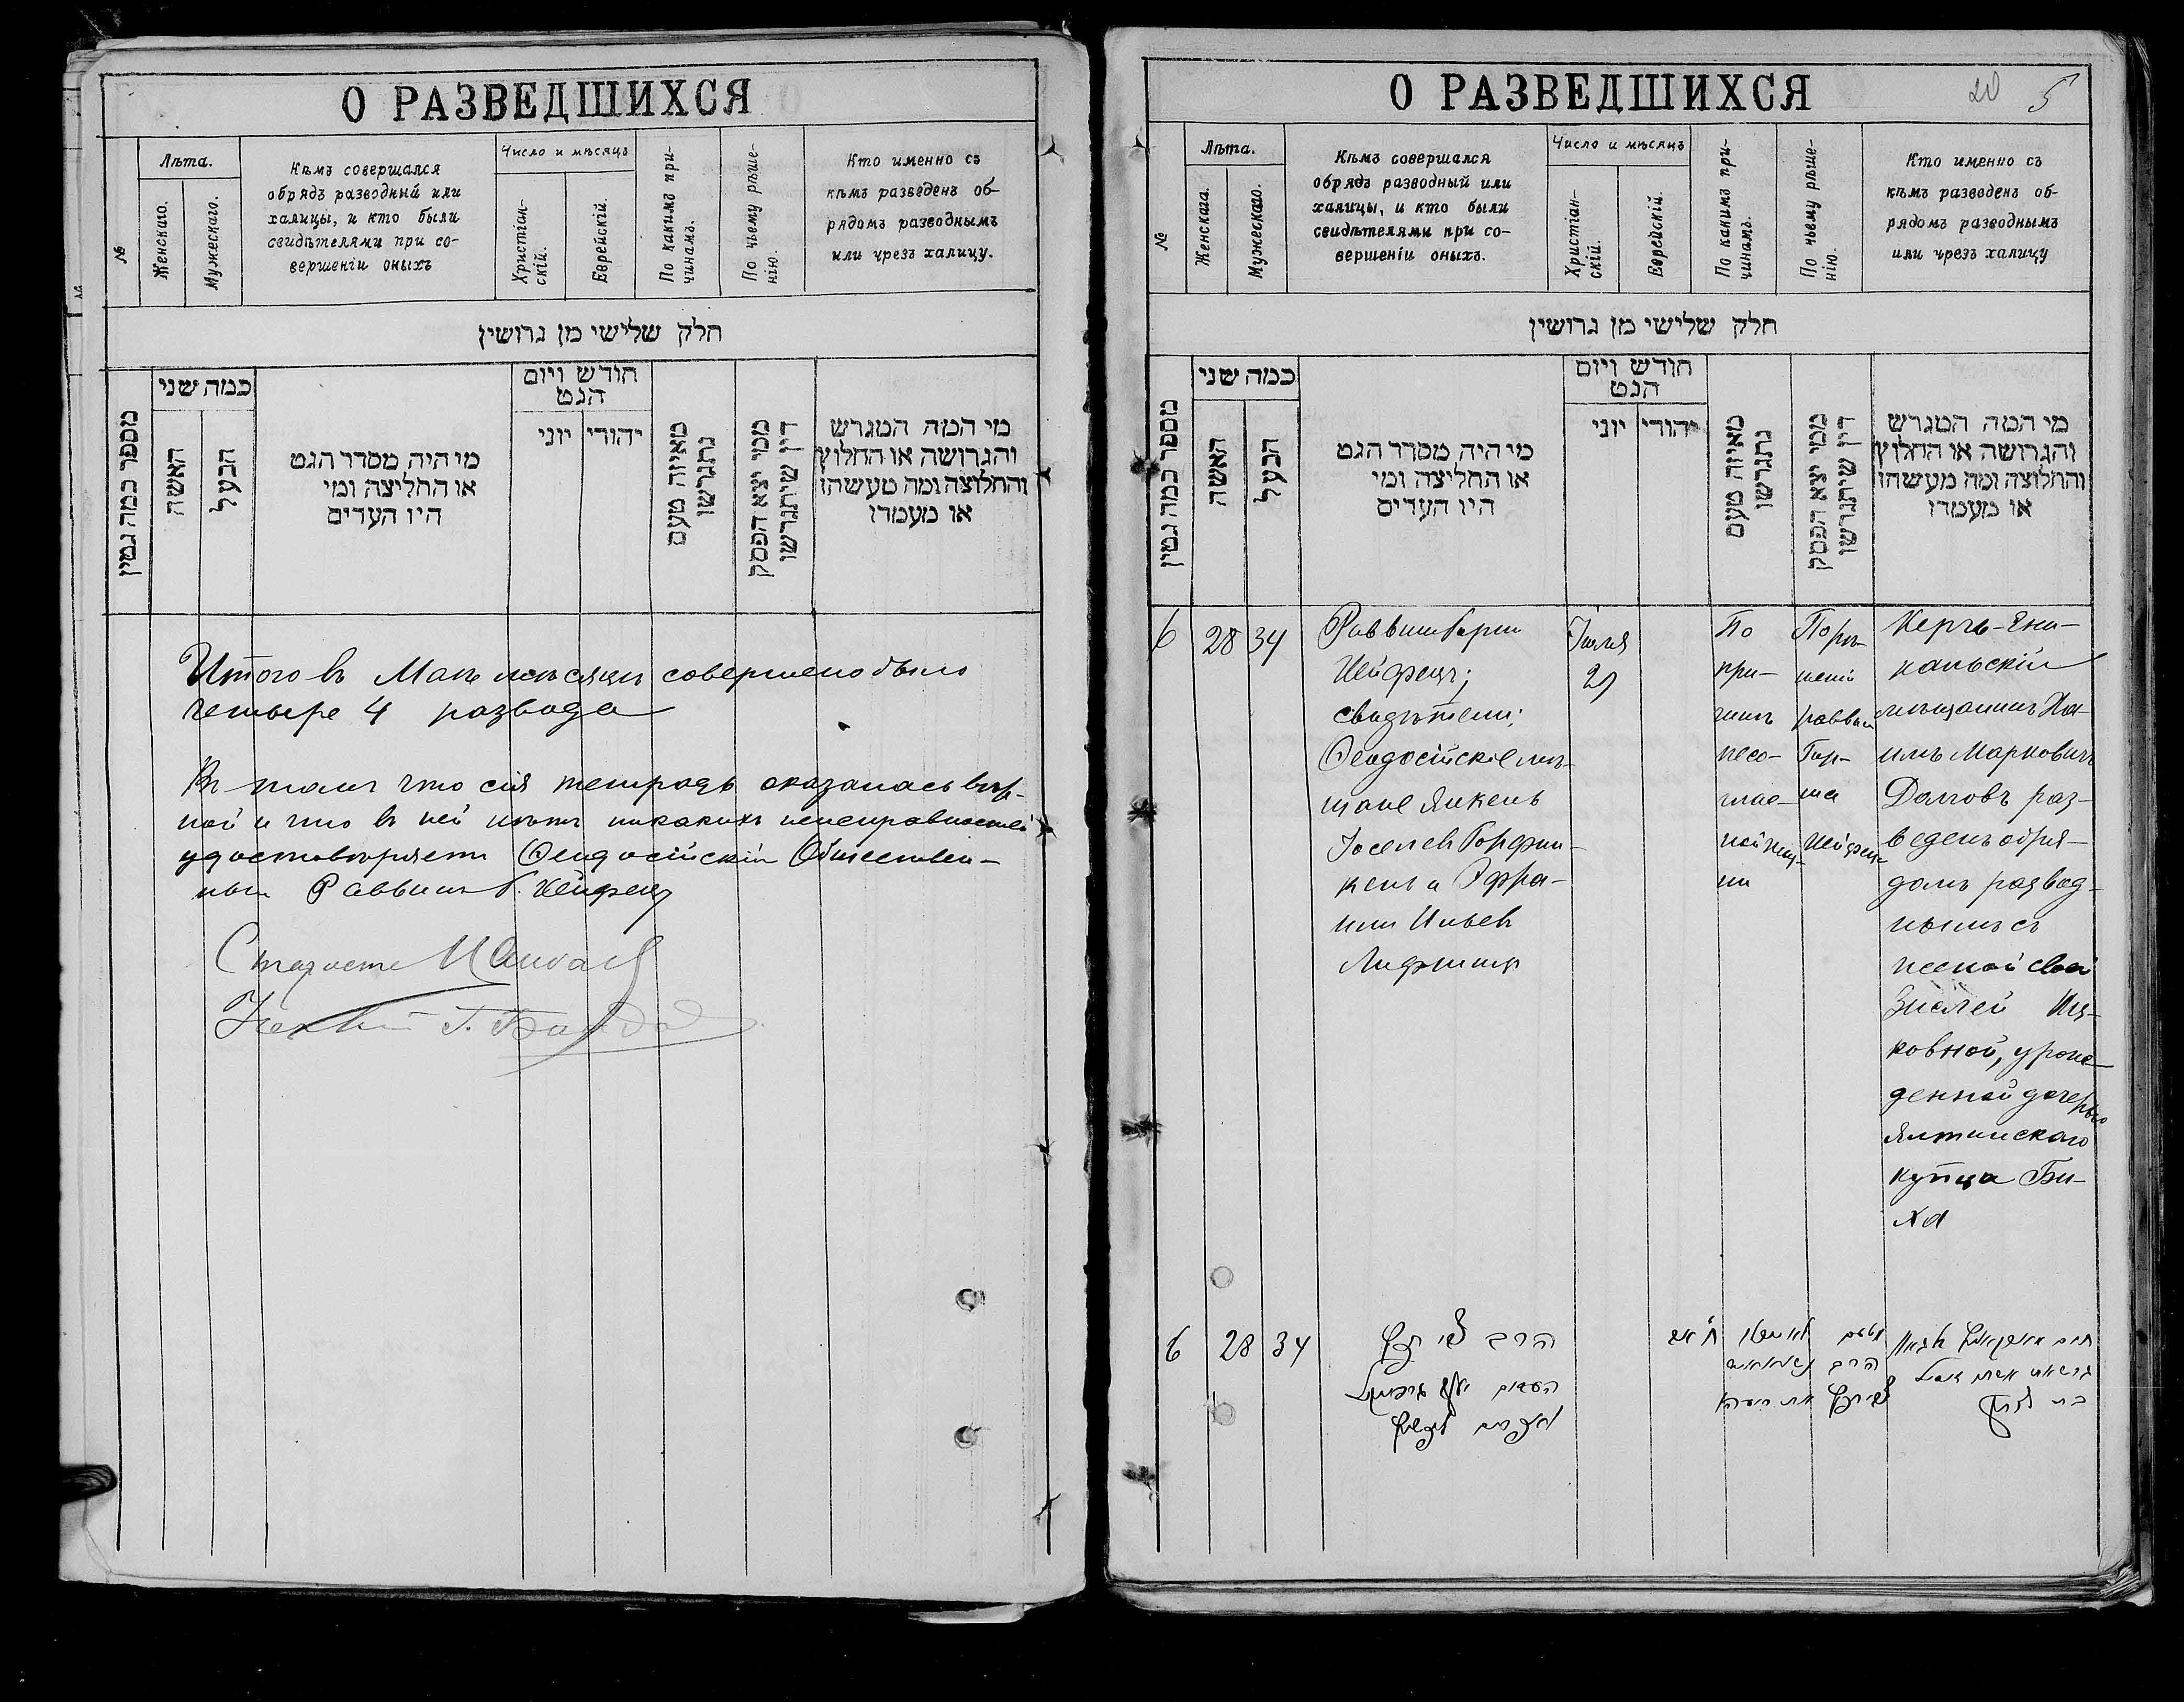 О РАЗВЕДШИХСЯ
№
Лѣта.
Женскаго.
Мужескаго.
Кѣмъ совершался
обрядъ разводный или
халицы, и кто были
свидѣтелями при со-
вершеніи оныхъ
Число и мѣсяцъ
Христіан-
скій.
Еврейскій.
По какимъ при-
чинамъ.
По чьему рѣше-
нію.
Кто именно съ
кѣмъ разведенъ об-
рядомъ разводнымъ
или чрезъ халицу.
חלק שלישי מן גרושין
מספר כמה גטין
כמה שני
האשה
הבעל
מי היה מסדר הגט
או החליצה ומי
היו העדים
חודש ויום
הגט
יוני
יהודי
מאיזה טעם
נתגרשו
ממי יצא הפסק
דין שיתגרשו
מי המה המגרש
והגרושה או החלוץ
והחלוצה ומה מעשהו
או מעמדו
Итого въ Маѣ мѣсяцѣ совершено было
четыре 4 развода
Въ томъ что сія тетрадь оказалась вѣр-
ной и что въ ней нѣтъ никакихъ неисправностей
удостовѣряетъ Ѳеодосійскій Обществен-
ный Раввинъ Б. Хейфецъ
Староста
О РАЗВЕДШИХСЯ
20 5
№
Лѣта.
Женскаго.
Мужескаго.
Кѣмъ совершался
обрядъ разводный или
халицы, и кто были
свидѣтелями при со-
вершеніи оныхъ.
Число и мѣсяцъ
Христіан-
скій.
Еврейскій.
По какимъ при-
чинамъ.
По чьему рѣше-
нію.
Кто именно съ
кѣмъ разведенъ об-
рядомъ разводнымъ
или чрезъ халицу
חלק שלישי מן גרושין
מספר כמה גטין
כמה שני
האשה
הבעל
מי היה מסדר הגט
או החליצה ומי
היו העדים
חודש ויום
הגט
יוני
יהודי
מאיזה טעם
נתגרשו
ממי יצא הפסק
דין שיתגרשו
מי המה המגרש
והגרושה או החלוץ
והחלוצה ומה מעשהו
או מעמדו
6
28
34
Раввинъ
Хейфецъ;
свидѣтели:
Ѳеодосійскіе мѣ-
щане Янкель
Іоселев Горфин-
кель и Эфра-
им Ильев
Лифшицъ
Іюля
21
По
при-
чинѣ
несо-
глас-
ной жиз-
ни
По рѣ-
шенію
раввина
Хейфеца
Керчь-Ени-
кальскій
мѣщанинъ Ха-
имъ Марковичъ
Долговъ раз-
веденъ обря-
домъ развод-
нымъ съ
женой своей
Иц-
ковной, урож-
денной дочерью
Ялтинскаго
купца Би-
6
28
34
הרב